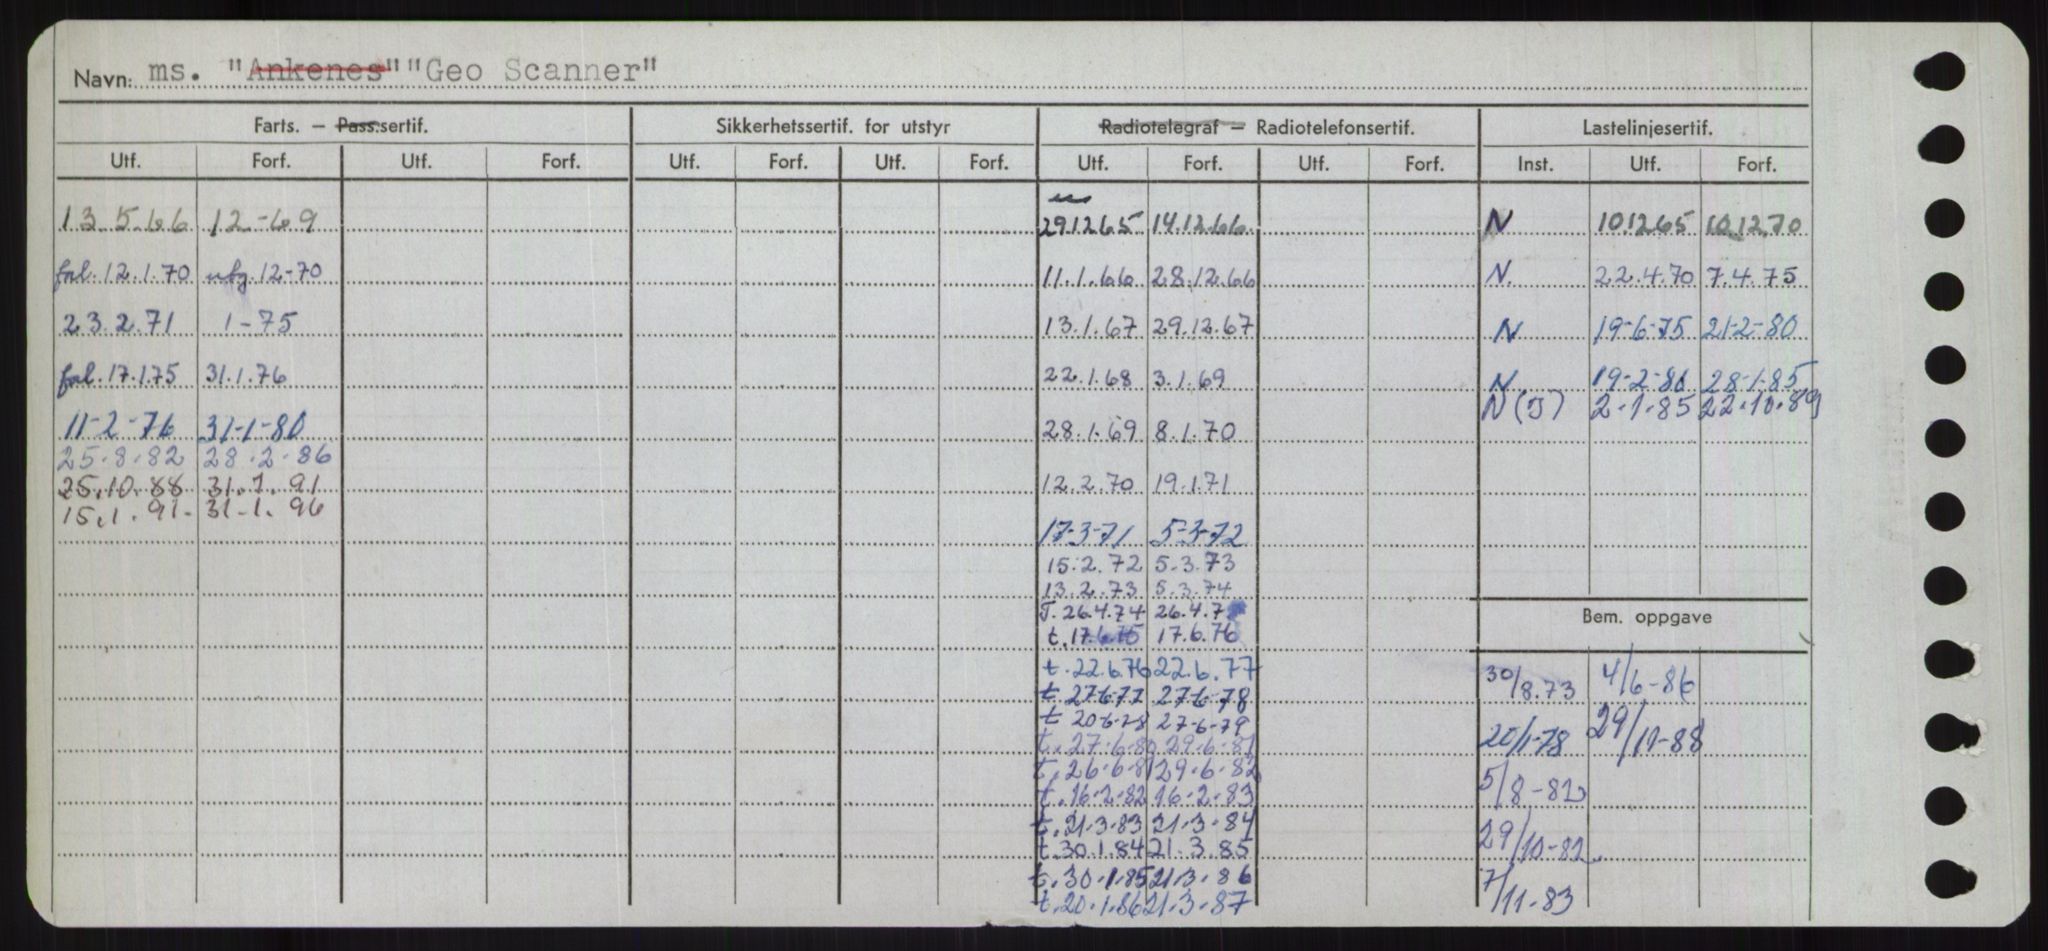 Navn: ms. "Ankenes" "Geo Scanner"
Farts. – Pass.sertif. Sikkerhetssertif. for utstyr Radiotelegraf – Radiotelefonsertif. Lastelinjesertif.
Utf. Forf. Utf. Forf. Utf. Forf. Utf. Forf. Utf. Forf. Utf. Forf. Inst. Utf. Forf.
13.5.66 12-69 29.12.65 14.12.66 N 10.12.65 10.12.70
fal. 12.1.70 12-70 11.1.66 28.12.66 N. 22.4.70 7.4.75
23.2.71 1-75 13.1.67 29.12.67 N 19-6-75 21-2-80
fal. 17.1.75 31.1.76 22.1.68 3.1.69 N 19-2-81 28-1-85
N (J) 2.1.85 22.10.89
11-2-76 31-1-80 28.1.69 8.1.70
25.8.82 28.2.86
25.10.88 31.1.91 12.2.70 19.1.71
15.1.91- 31-1.96
17-3-71 5-3-72
15.2.72 5.3.73
13.2.73 5.3.74
T. 26.4.74 26.4.7
Bem. oppgave
t. 17.6.75 17.6.76
t. 22.6.76 22.6.77 30/8.73 4/6-86
t. 27-6-77 27-6-78
t 20-6-78 27-6-79 20/1-78 29/11-88
t. 27.6.80 29.6.81
t. 26.6.81 29.6.82 5/8-82
t. 16-2-82 16-2-83
t. 21.3.83 21.3.84
t. 30.1.84 21.3.85 29/10-82
t. 30.1.85 21.3.86 7/11.83
t. 20.1.86 21.3.87